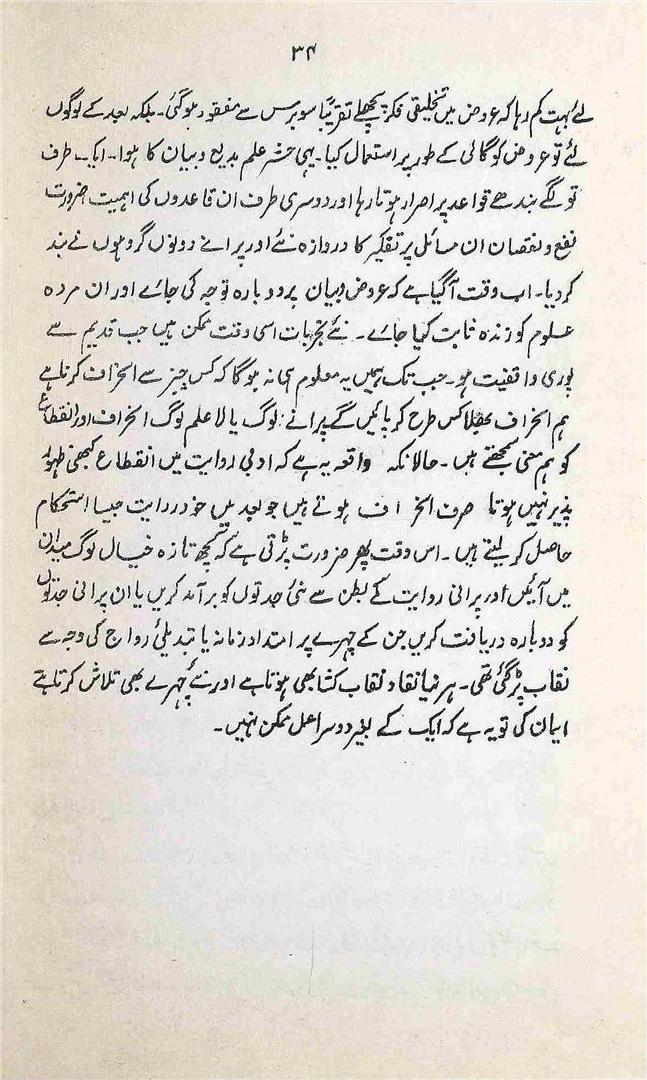 ۳۴
لئے بہت کم رہا کہ عروض میں تخلیقی فکر پچھلے تقریباً سو برس سے مفقود ہو گئی۔ بلکہ بعد کے لوگوں
نے تو عروض کو گالی کے طور پر استعمال کیا۔ یہی حشر علم بدیع و بیان کا ہوا۔ ایک طرف
تو لگے بندھے قواعد پر اصرار ہوتا رہا اور دوسری طرف ان قاعدوں کی اہمیت ضرورت
نفع و نقصان ان مسائل پر تفکیر کا دروازہ نئے اور پرانے دونوں گروہوں نے بند
کر دیا۔ اب وقت آ گیا ہے کہ عروض و بیان پر دوبارہ توجہ کی جائے اور ان مردہ
علوم کو زندہ ثابت کیا جائے۔ نئے تجربات اسی وقت ممکن ہیں جب قدیم سے
پوری واقفیت ہو۔ جب تک ہمیں یہ معلوم ہی نہ ہوگا کہ کس چیز سے انحراف کرنا ہے
ہم انحراف بھلا کس طرح کر پائیں گے پرانے لوگ یا لاعلم لوگ انحراف اور انقطاع
کو ہم معنی سمجھتے ہیں۔ حالانکہ واقعہ یہ ہے کہ ادبی روایت میں انقطاع کبھی ظہور
پذیر نہیں ہوتا صرف انحراف ہوتے ہیں جو بعد میں خود روایت جیسا استحکام
حاصل کر لیتے ہیں۔ اس وقت پھر ضرورت پڑتی ہے کہ کچھ تازہ خیال لوگ میدان
میں آئیں اور پرانی روایت کے بطن سے نئی جدتوں کو برآمد کریں یا ان پرانی جدتوں
کو دوبارہ دریافت کریں جن کے چہرے پر امتداد زمانہ یا تبدیلئ رواج کی وجہ سے
نقاب پڑ گئی تھی۔ ہر نیا نقاد نقاب کشا بھی ہوتا ہے اور نئے چہرے بھی تلاش کرتا ہے
ایمان کی تو یہ ہے کہ ایک کے بغیر دوسرا عمل ممکن نہیں۔